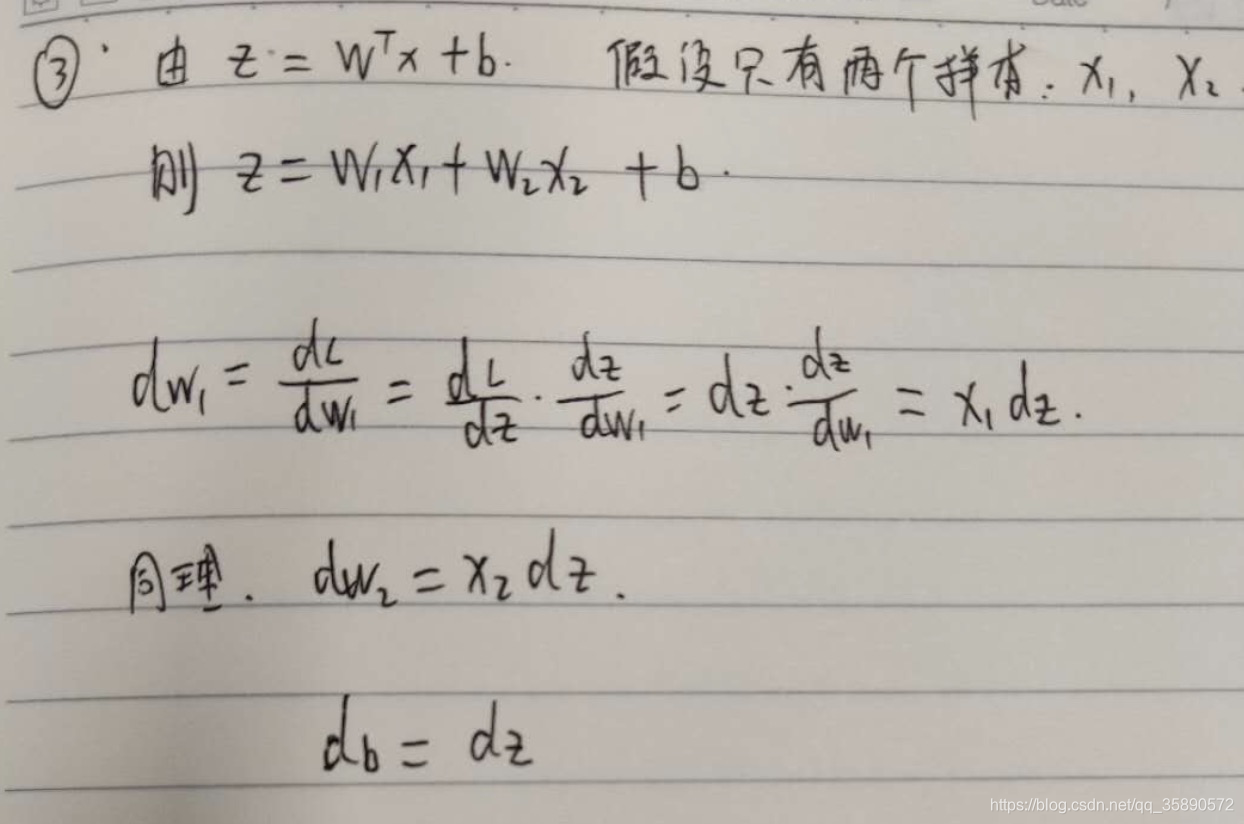 ③. 由 z = WᵀX + b. 假设只有两个样本: X₁, X₂.
则 z = W₁X₁ + W₂X₂ + b.
dW₁ = dL/dW₁ = dL/dz · dz/dW₁ = dz · dz/dW₁ = X₁dz.
同理. dW₂ = X₂dz.
db = dz
https://blog.csdn.net/qq_35890572